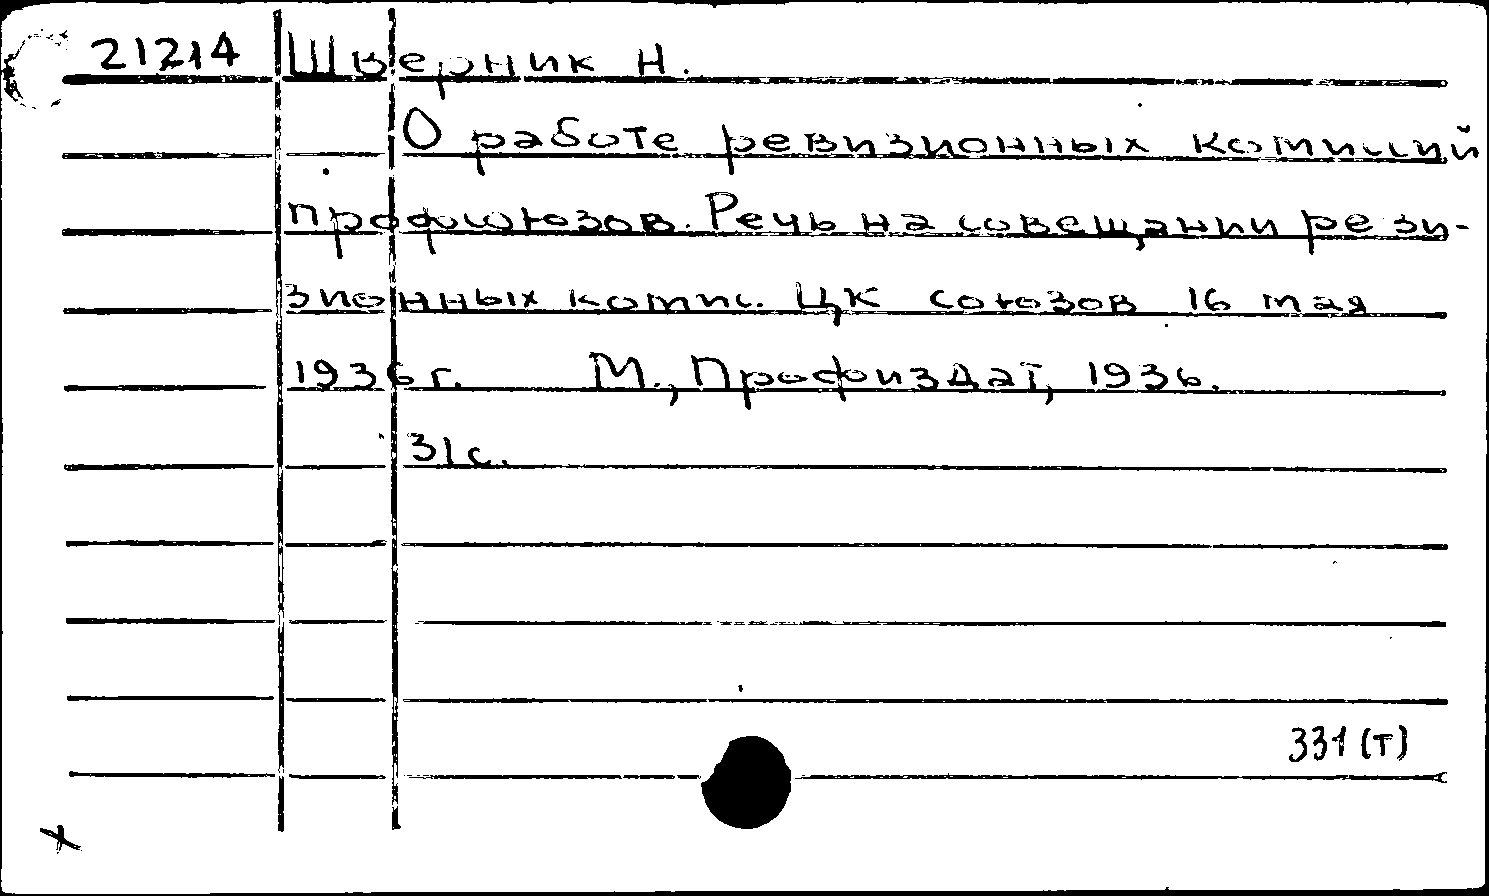 21214 Шверник Н.
О работе ревизионных комиссий
профсоюзов. Речь на совещании реви-
зионных комис. ЦК союзов 16 мая
1936 г. М., Профиздат, 1936.
31 с.
331 (Т)